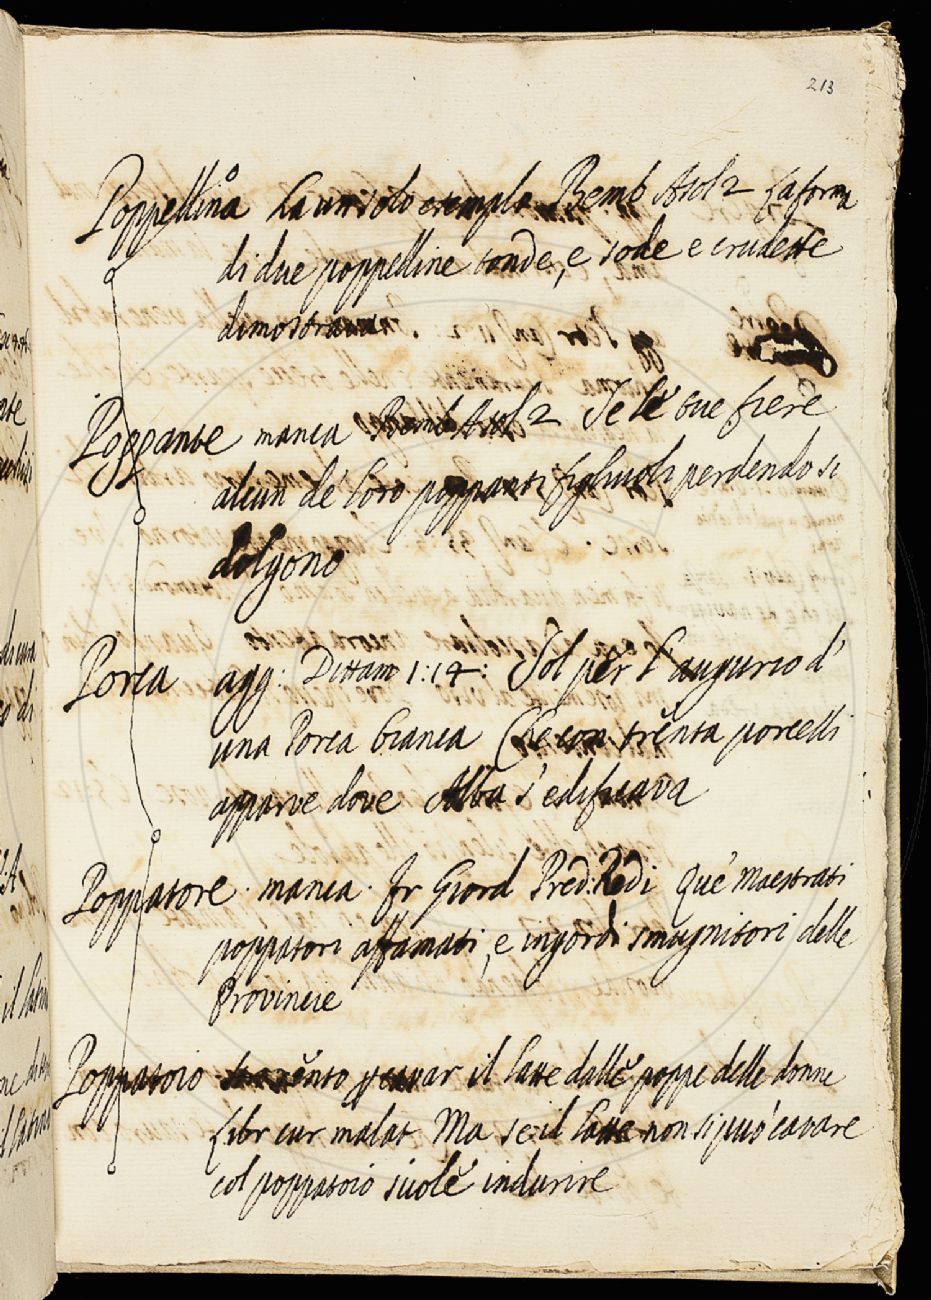 213
Poppellina ha un solo exemplo Bemb Asol 2 La forma
di due poppelline tonde, e sode e crudette
dimostrava
Poppante manca Bemb Asol 2 Se le tue fiere
alcun de loro poppanti figliuoli perdendo si
dolgono
Porca agg: Dittam 1:14: Sol per l'augurio d'
una Porca bianca Che con trenta porcelli
apparve dove Alba s'edificava
Poppatore manca fr Giord Pred: Redi Que Maestrati
poppatori affamati, e ingordi smugnitori delle
Provincie
Poppatoio il latte dalle poppe delle donne
Libr cur malat Ma se il latte non si può cavare
col poppatoio suole indurire